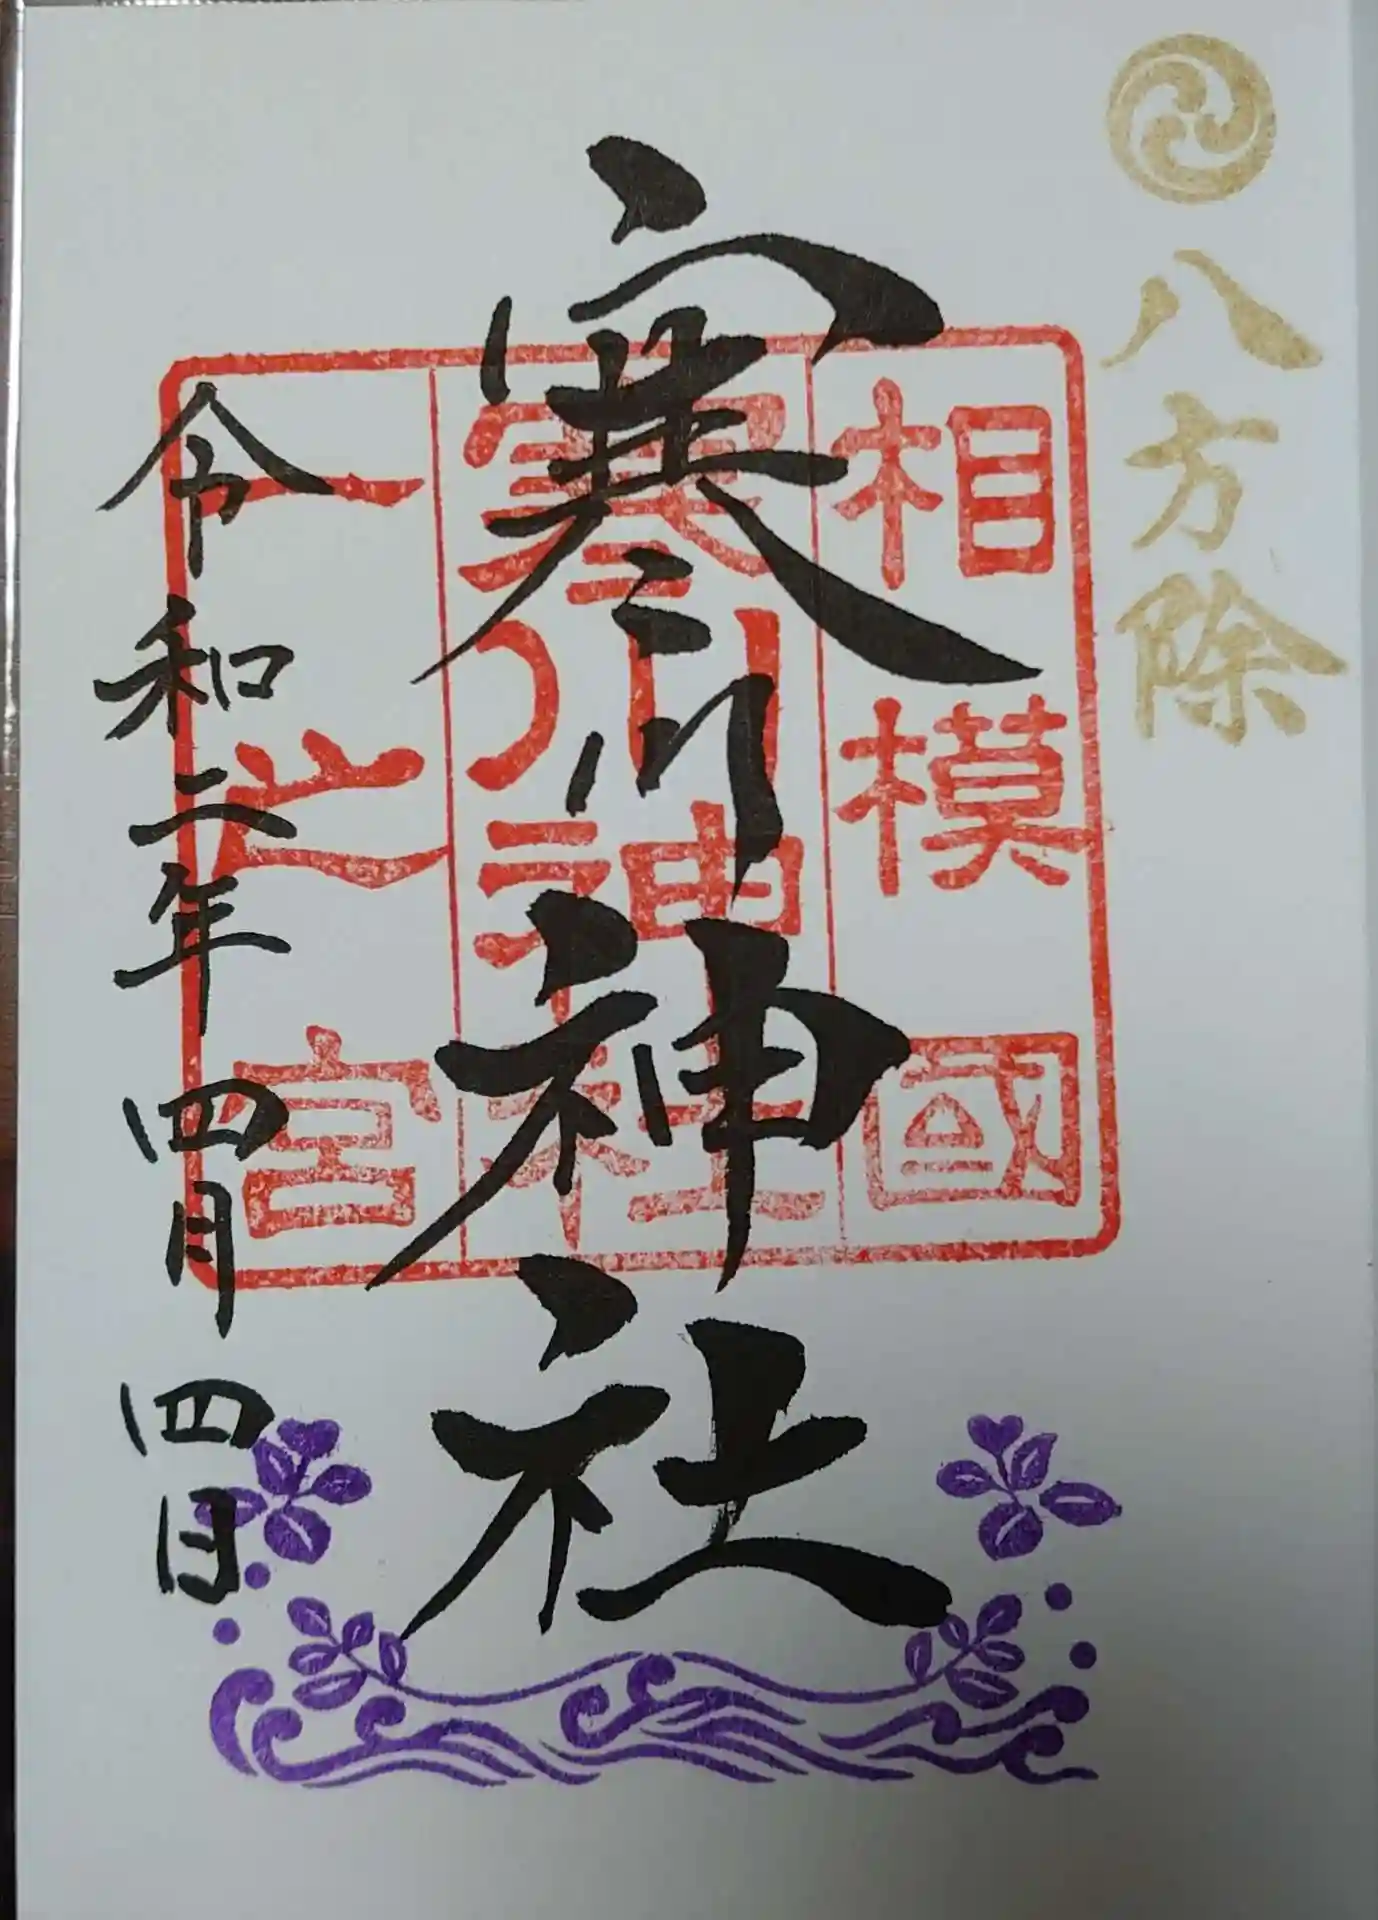 八方除
相模國
寒川神社
一之宮
寒川神社
令和二年 四月 四日